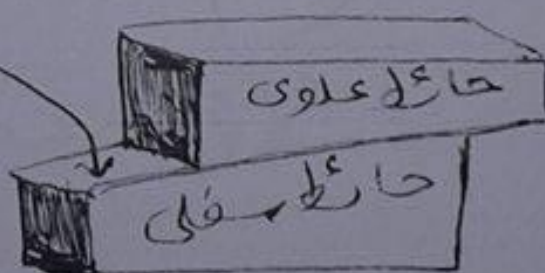 حائط علوى
حائط سفلى